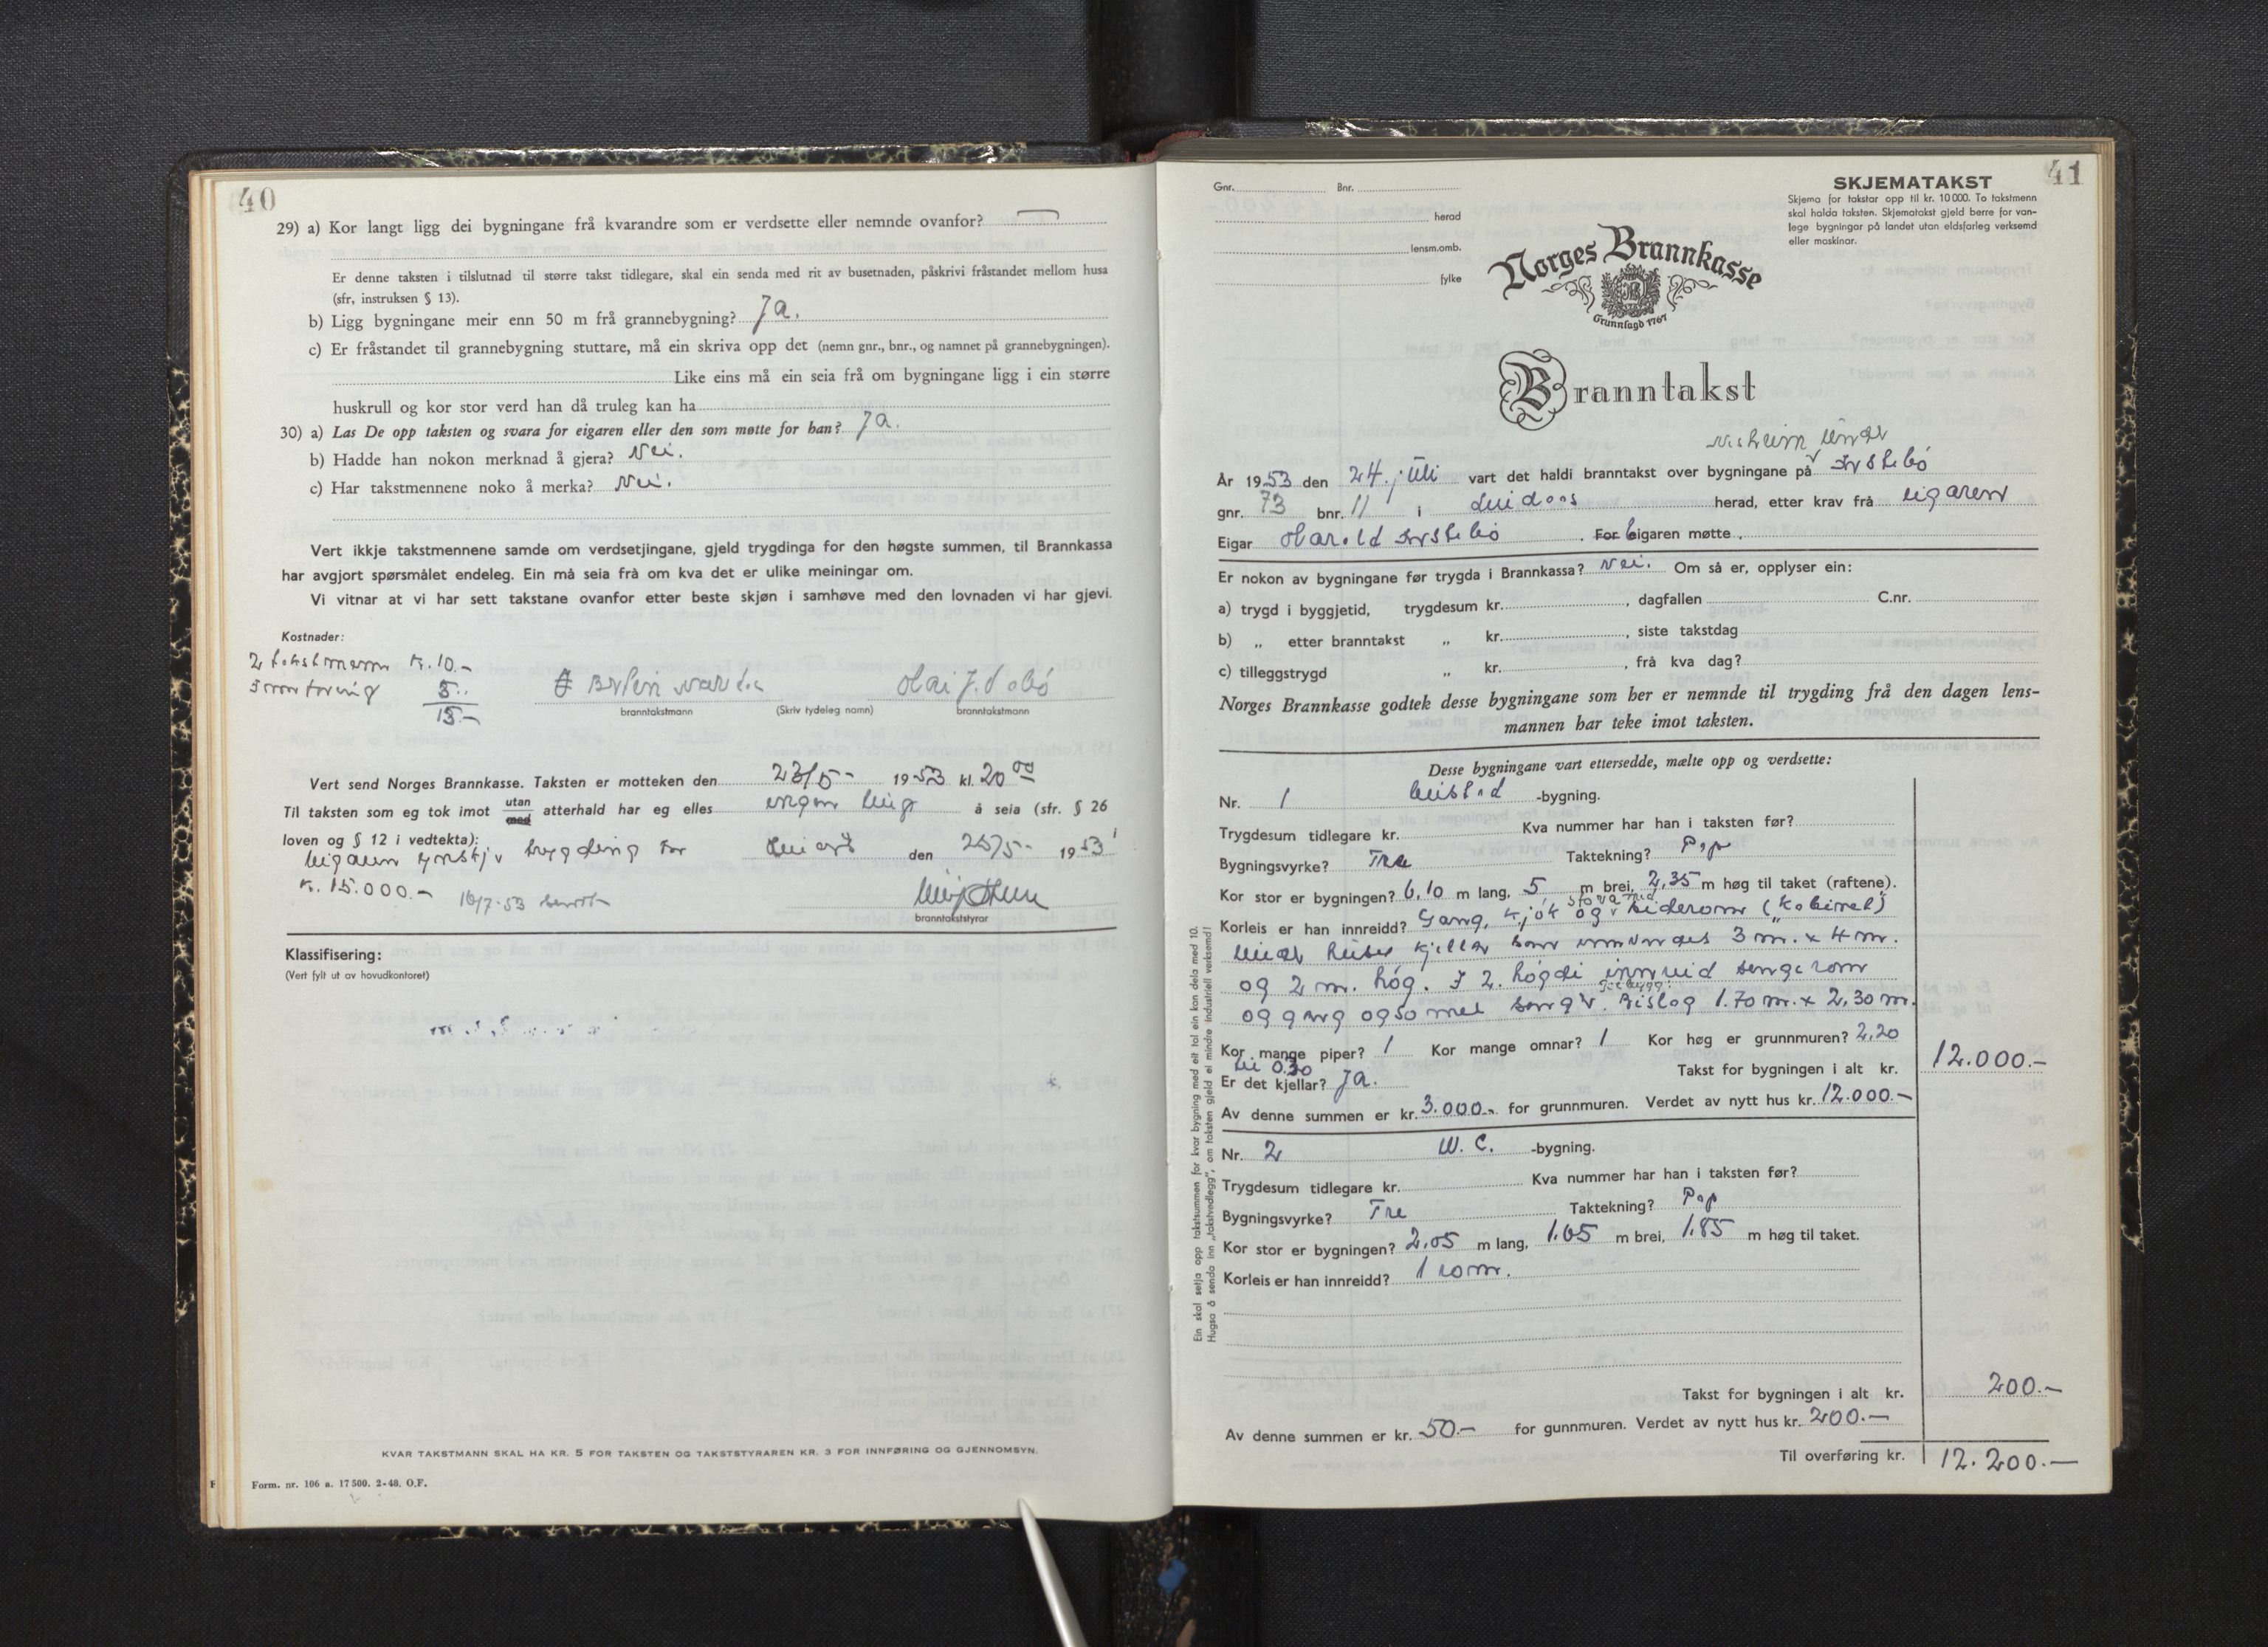 40
29) a) Kor langt ligg dei bygningane frå kvarandre som er verdsette eller nemnde ovanfor?
Er denne taksten i tilslutnad til større takst tidlegare, skal ein senda med rit av busetnaden, påskrivi fråstandet mellom husa
(sfr, instruksen § 13).
b) Ligg bygningane meir enn 50 m frå grannebygning? Ja.
c) Er fråstandet til grannebygning stuttare, må ein skriva opp det (nemn gnr., bnr., og namnet på grannebygningen).
Like eins må ein seia frå om bygningane ligg i ein større
huskrull og kor stor verd han då truleg kan ha
30) a) Las De opp taksten og svara for eigaren eller den som møtte for han? Ja.
b) Hadde han nokon merknad å gjera? Nei.
c) Har takstmennene noko å merka? Nei.
Vert ikkje takstmennene samde om verdsetjingane, gjeld trygdinga for den høgste summen, til Brannkassa
har avgjort spørsmålet endeleg. Ein må seia frå om kva det er ulike meiningar om.
Vi vitnar at vi har sett takstane ovanfor etter beste skjøn i samhøve med den lovnaden vi har gjevi.
Kostnader:
2 takstmenn kr. 10.-
Innføring 5..
15.-
branntakstmann (Skriv tydeleg namn) branntakstmann
Vert send Norges Brannkasse. Taksten er motteken den 23/5- 1953 kl. 20 00
Til taksten som eg tok imot utan med atterhald har eg elles ingen ting å seia (sfr. § 26
loven og § 12 i vedtekta):
Eigaren ynskjer trygding for den 25/5- 1953
kr. 15.000.- 16/7-53
branntakststyrar
Klassifisering:
(Vert fylt ut av hovudkontoret)
KVAR TAKSTMANN SKAL HA KR. 5 FOR TAKSTEN OG TAKSTSTYRAREN KR. 3 FOR INNFØRING OG GJENNOMSYN.
Form. nr. 106 a. 17 500. 2-48. O.F.
41
Gnr. Bnr.
herad
lensm.omb.
fylke
SKJEMATAKST
Skjema for takstar opp til kr. 10 000. To takstmenn
skal halda taksten. Skjematakst gjeld berre for van-
lege bygningar på landet utan eldsfarleg verksemd
eller maskinar.
Norges Brannkasse
Grunnlagd 1767
Branntakst
År 1953 den 24. juli vart det haldi branntakst over bygningane på
gnr. 73 bnr. 11 i Lindaas herad, etter krav frå eigaren
Eigar Harald . For Eigaren møtte .
Er nokon av bygningane før trygda i Brannkassa? Nei. Om så er, opplyser ein:
a) trygd i byggjetid, trygdesum kr. , dagfallen C.nr.
b) „ etter branntakst „ kr. , siste takstdag
c) tilleggstrygd „ kr. , frå kva dag?
Norges Brannkasse godtek desse bygningane som her er nemnde til trygding frå den dagen lens-
mannen har teke imot taksten.
Desse bygningane vart ettersedde, mælte opp og verdsette:
Nr. 1 -bygning.
Trygdesum tidlegare kr. Kva nummer har han i taksten før?
Bygningsvyrke? Tre Taktekning? Pap
Kor stor er bygningen? 6.10 m lang, 5 m brei, 2,35 m høg til taket (raftene).
Korleis er han innreidd? Gang, kjøk og stova med siderom (kabinet)
under huset kjellar som innvendes 3 m. x 4 m.
og 2 m. høg. I 2. høgdi innreid sengerom
og gang ogso med seng. Bislag 1.70 m. x 2,30 m.
Kor mange piper? 1 Kor mange omnar? 1 Kor høg er grunnmuren? 2,20
til 0.30
Er det kjellar? Ja. Takst for bygningen i alt kr. 12.000.-
Av denne summen er kr. 3.000.- for grunnmuren. Verdet av nytt hus kr. 12.000.-
Nr. 2 W. C. -bygning.
Trygdesum tidlegare kr. Kva nummer har han i taksten før?
Bygningsvyrke? Tre Taktekning? Pap
Kor stor er bygningen? 2,05 m lang, 1.65 m brei, 1.85 m høg til taket.
Korleis er han innreidd? 1 rom.
Takst for bygningen i alt kr. 200.-
Av denne summen er kr. 50.- for gunnmuren. Verdet av nytt hus kr. 200.-
Til overføring kr. 12.200.-
Ein skal setja opp takstsummen for kvar bygning med eit tal ein kan dela med 10.
Hugsa å senda inn „takstvedlegg", om taksten gjeld ei mindre industriell verksemd!